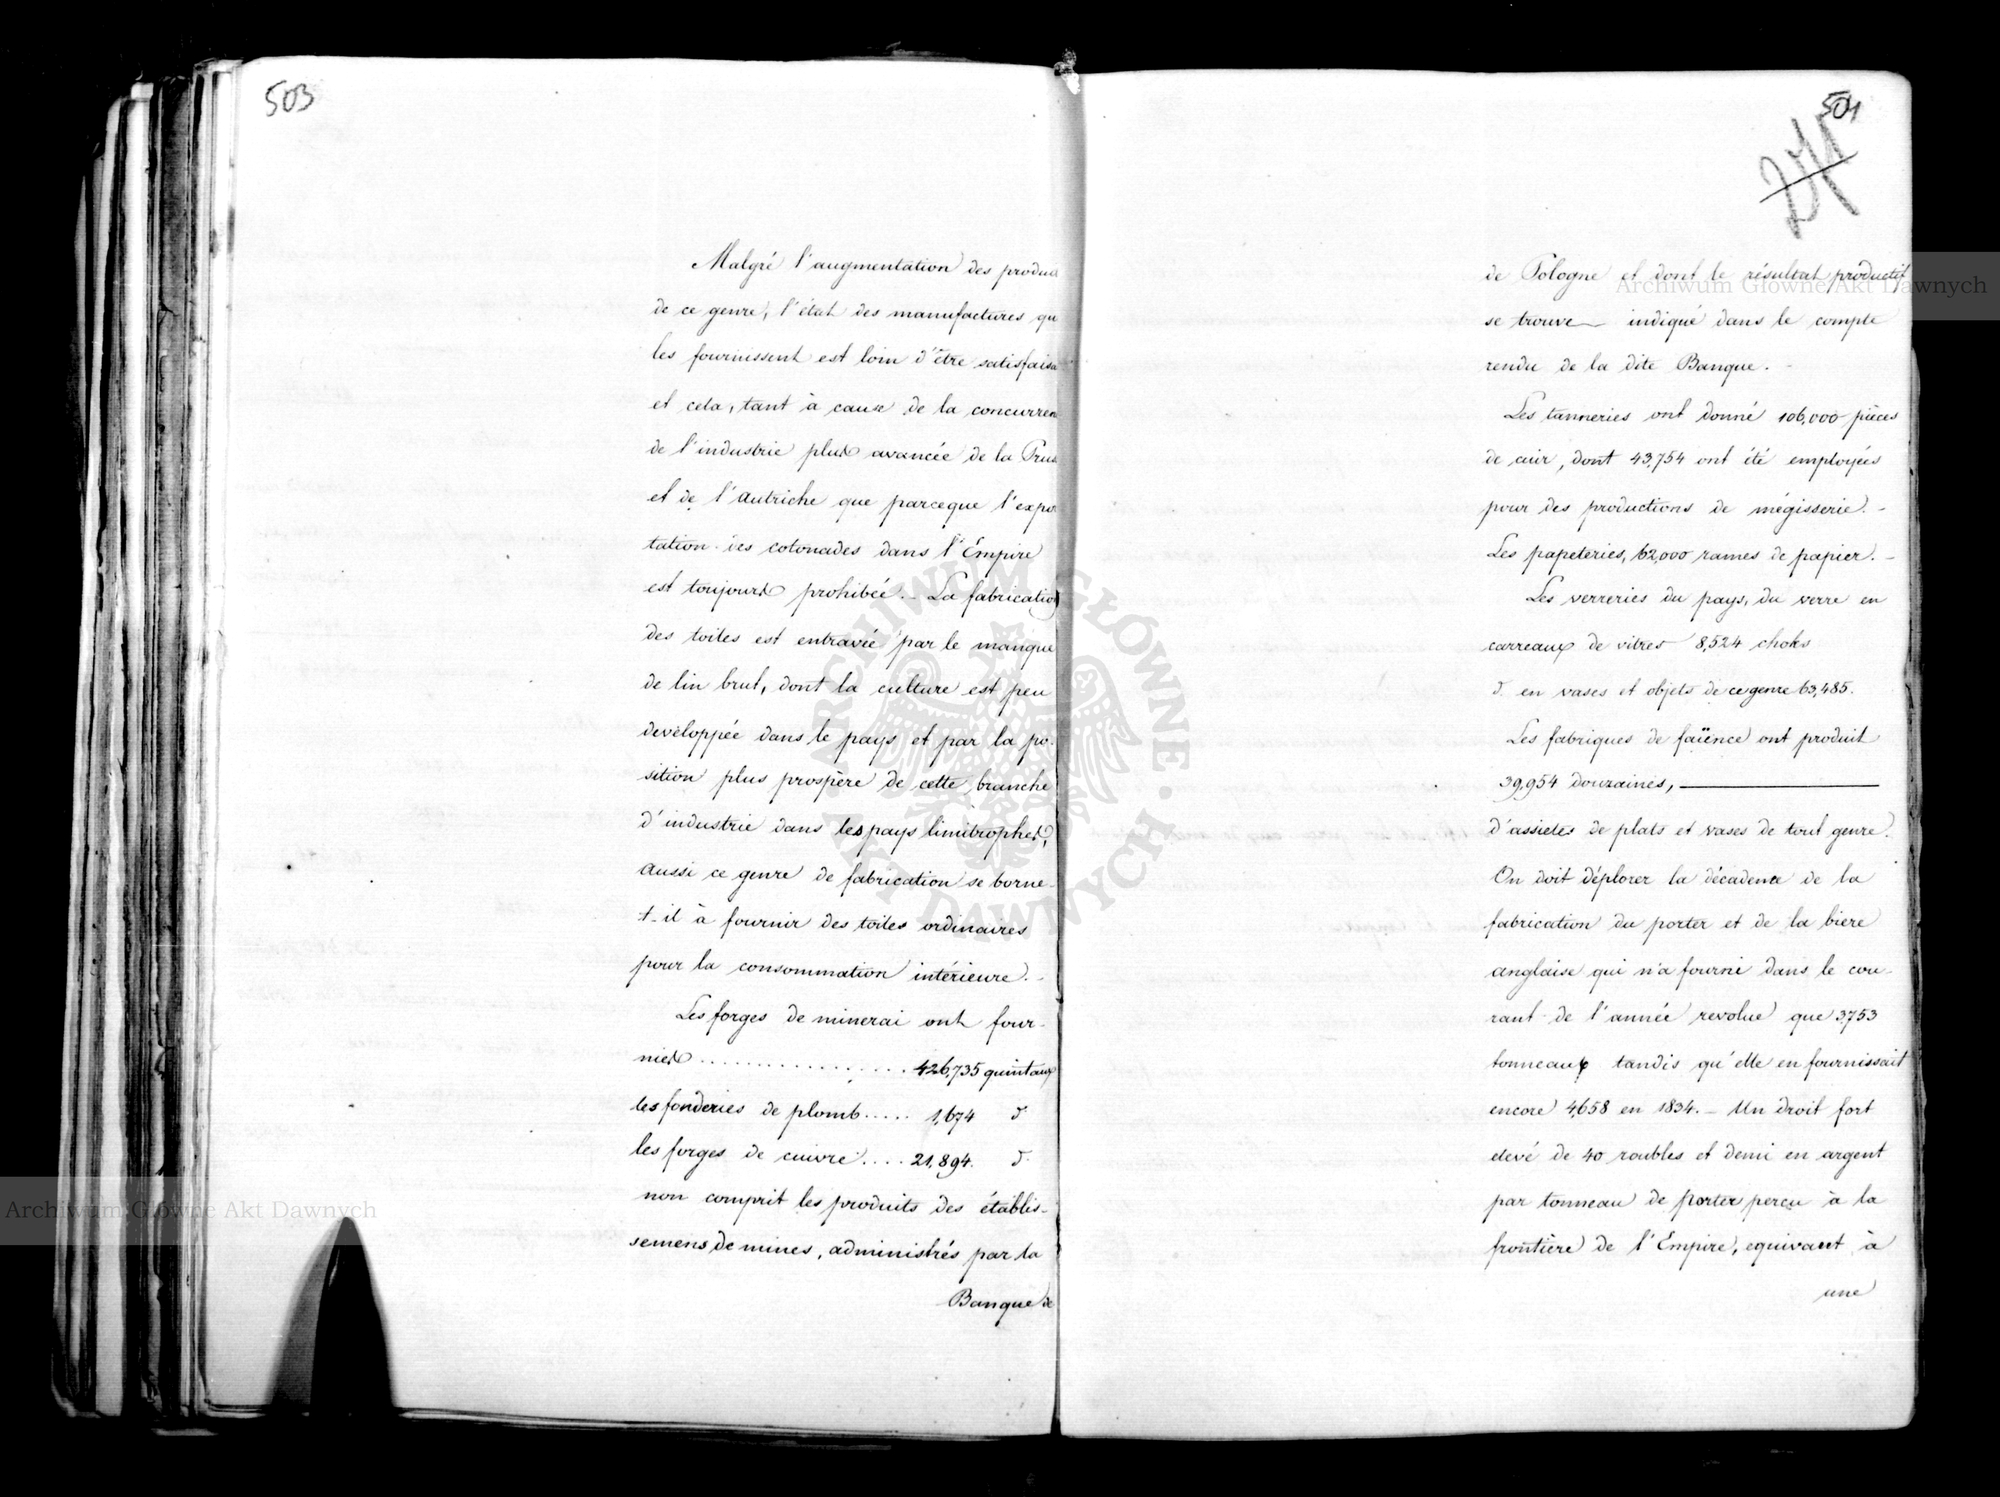 503
Malgré l'augmentation des produi
de ce genre, l'état des manufactures qu
les fournissent est loin d'être satisfaisa
et cela, tant à cause de la concurren
de l'industrie plus avancée de la Prus
et de l'Autriche que parceque l'expor
tation des cotonades dans l'Émpire
est toujours prohibée. - La fabrication
des toiles est entravée par le manque
de lin brut, dont la culture est peu
developpée dans le pays et par la po-
sition plus prospère de cette branche
d'industrie dans les pays limitrophes,
aussi ce genre de fabrication se borne-
t-il à fournir des toiles ordinaires
pour la consommation intérieure. -
Les forges de minerai ont four-
nies .................. 426,735 quintaux
les fonderies de plomb..... 1,674 d.
les forges de cuivre.... 21,894. d.
non comprit les produits des établis-
semens de mines, administrés par la
Banque de
de Pologne et dont le résultat productif
se trouve indiqué dans le compte
rendu de la dite Banque. -
Les tanneries ont donné 106,000 pièces
de cuir, dont 43,754 ont été employées
pour des productions de mégisserie. -
Les papeteries, 62,000 rames de papier. -
Les verreries du pays, du verre en
carreaux de vitres 8,524 choks
d. en vases et objets de ce genre 63,485.
Les fabriques de faïence ont produit
39,954 douzaines,
d'assietes de plats et vases de tout genre.
On doit déplorer la décadence de la
fabrication du porter et de la biere
anglaise qui n'a fourni dans le cou-
rant de l'année revolue que 3,753
tonneaux tandis qu'elle en fournissait
encore 4,658 en 1834. - Un droit fort
elevé de 40 roubles et demi en argent
par tonneau de porter perçu à la
frontière de l'Empire, equivaut à
une
Archiwum Główne Akt Dawnych
Archiwum Główne Akt Dawnych
ARCHIWUM GŁÓWNE AKT DAWNYCH